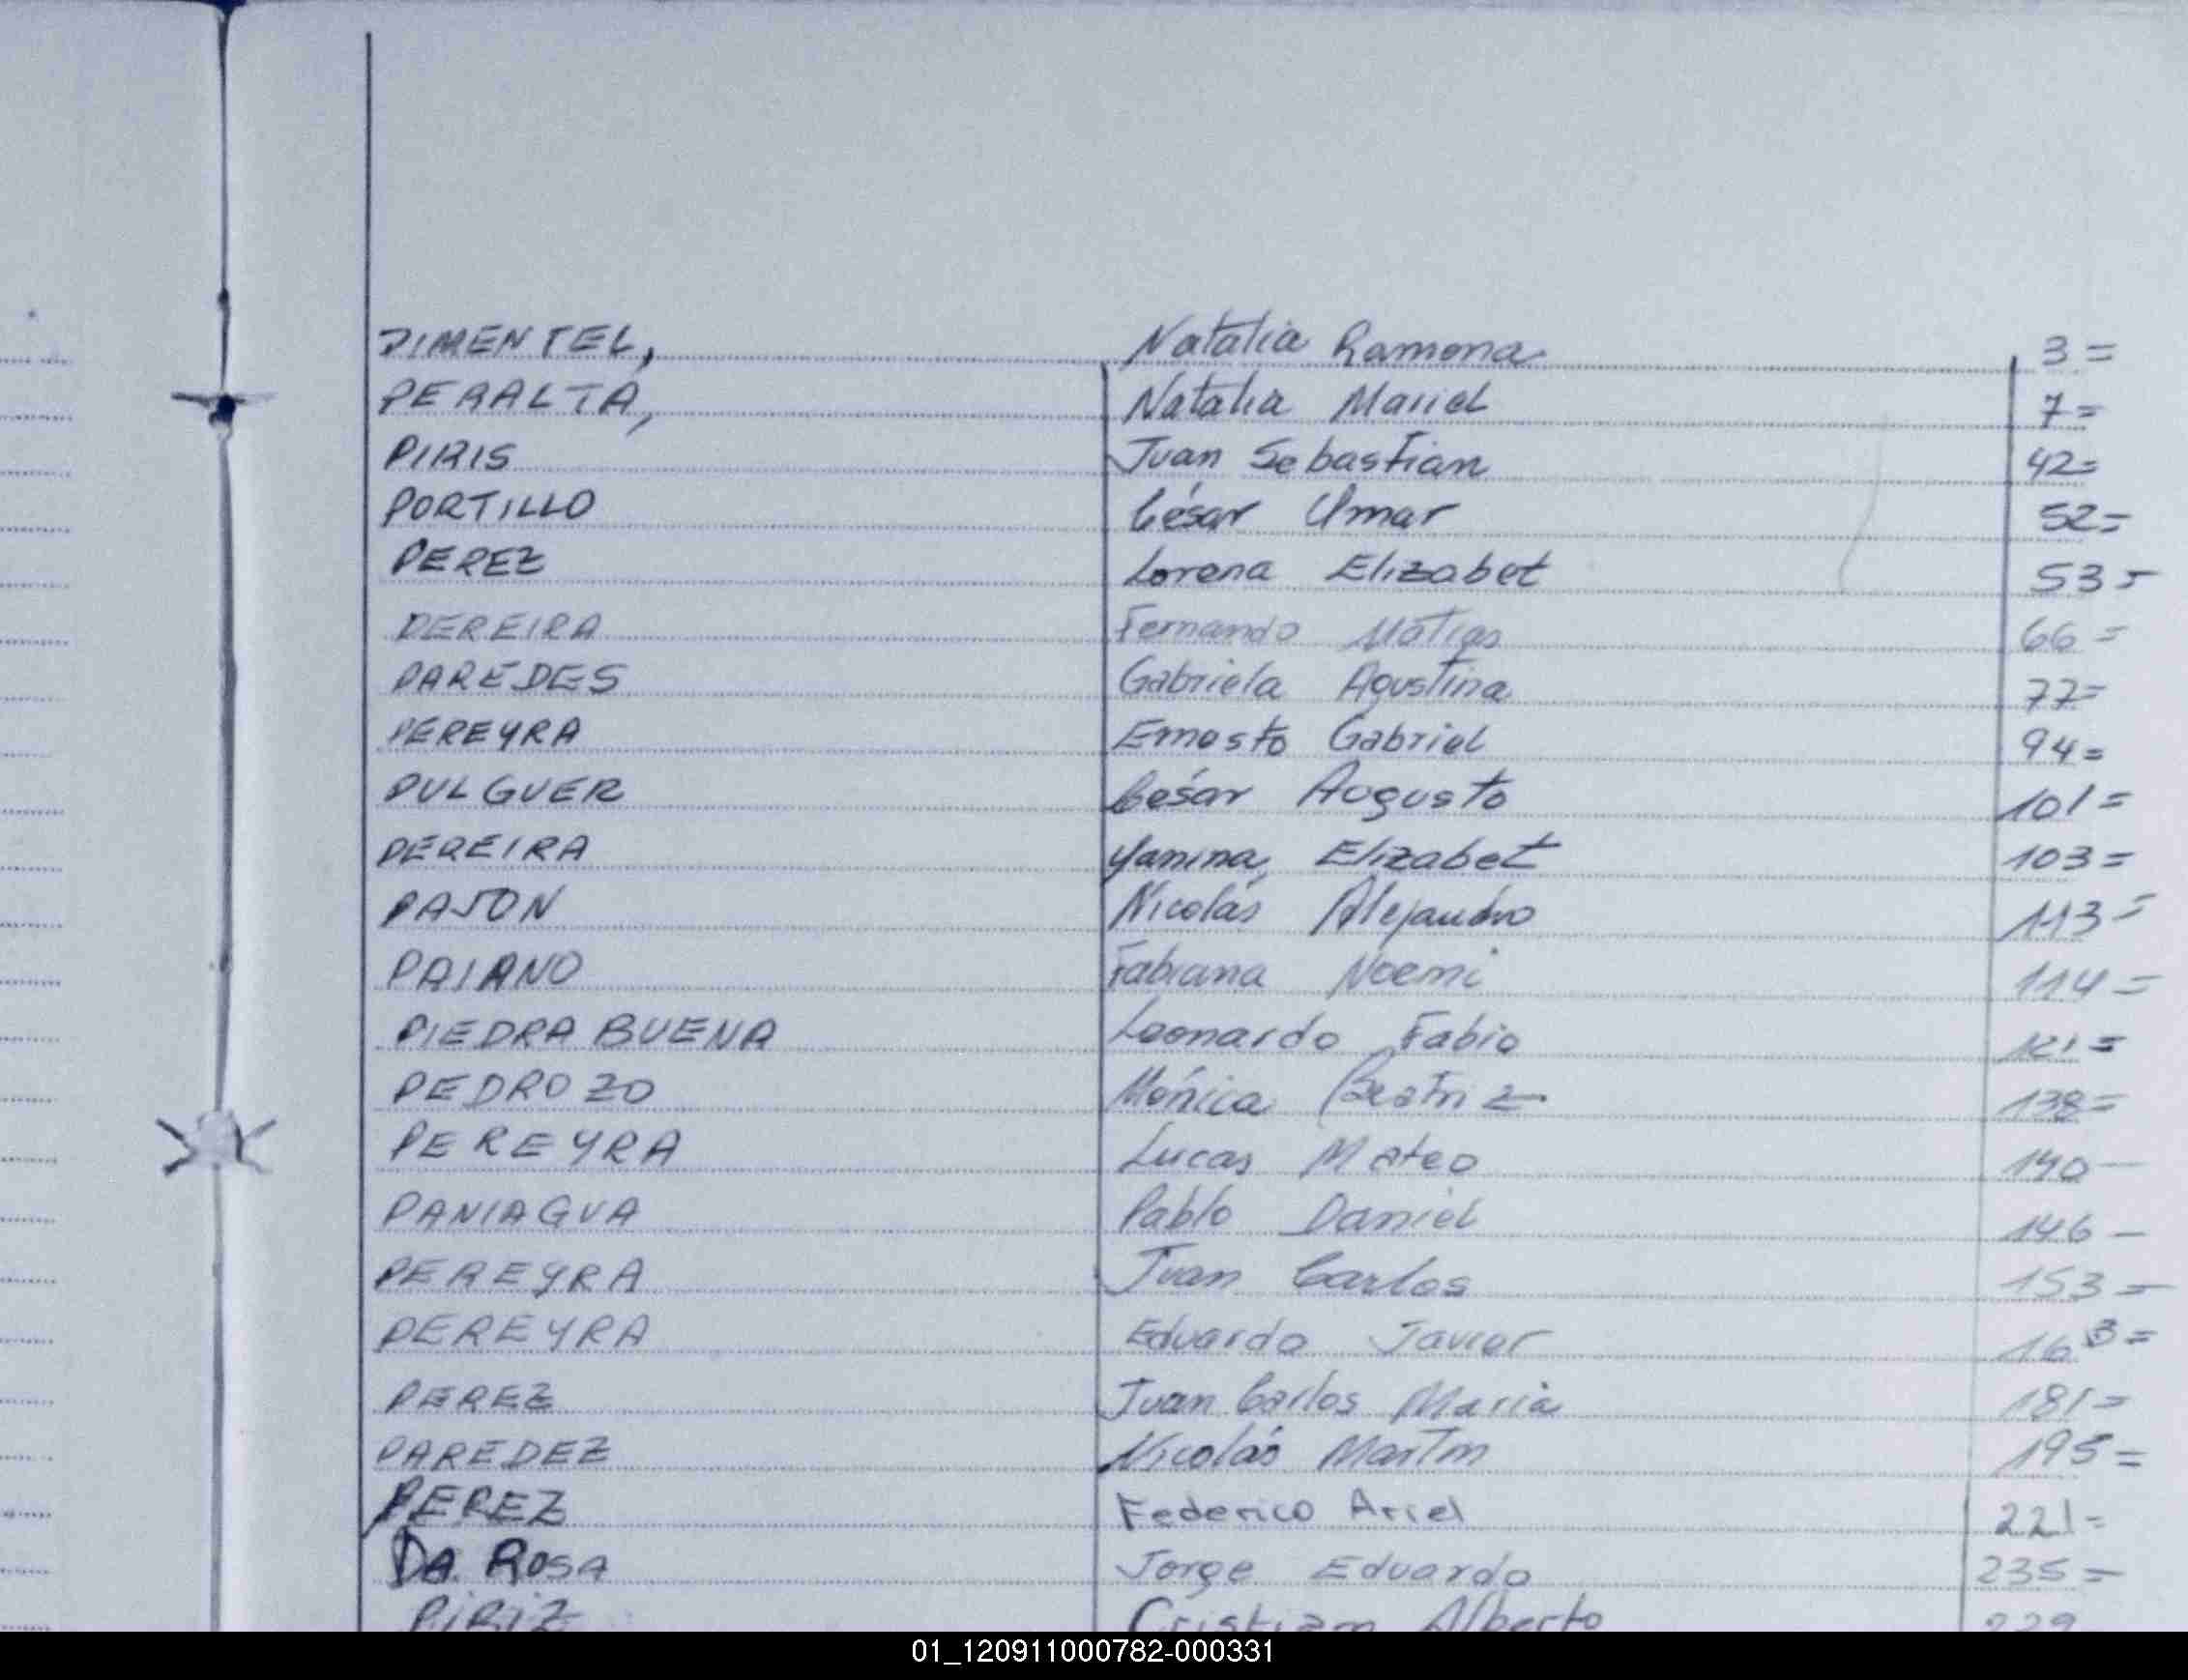 PIMENTEL, Natalia Ramona 3=
PERALTA, Natalia Mariel 7=
PIRIS Juan Sebastian 42=
PORTILLO César Omar 52=
PEREZ Lorena Elizabet 53=
PEREIRA Fernando Matias 66=
PAREDES Gabriela Agustina 77=
PEREYRA Ernesto Gabriel 94=
PULGUER César Augusto 101=
PEREIRA Yanina Elizabet 103=
PAJON Nicolás Alejandro 113=
PAIANO Fabiana Noemi 114=
PIEDRA BUENA Leonardo Fabio 121=
PEDROZO Mónica Beatriz 138=
PEREYRA Lucas Mateo 140-
PANIAGUA Pablo Daniel 146-
PEREYRA Juan Carlos 153=
PEREYRA Eduardo Javier 163=
PEREZ Juan Carlos Maria 181=
PAREDEZ Nicolás Martin 195=
PEREZ Federico Ariel 221=
DA ROSA Jorge Eduardo 235=
PIRIZ Cristian Alberto
01_120911000782-000331